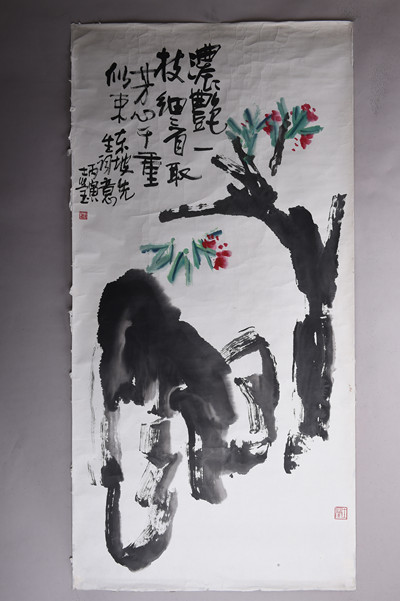 濃艷一
枝細看取
芳心千重
似束
东坡先
生詞意
丙寅